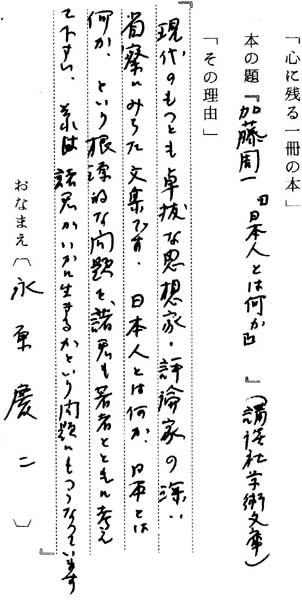 「心に残る一冊の本」
本の題『加藤周一『日本人とは何か』』(講談社学術文庫)
「その理由」
『現代のもっとも卓抜な思想家・評論家の深い
省察にみちた文集です. 日本人とは何か, 日本とは
何か, という根源的な問題を, 諸君も著者とともに考え
て下さい. それは諸君がいかに生きるかという問題にもつらなっています』
おなまえ〔永原慶二〕